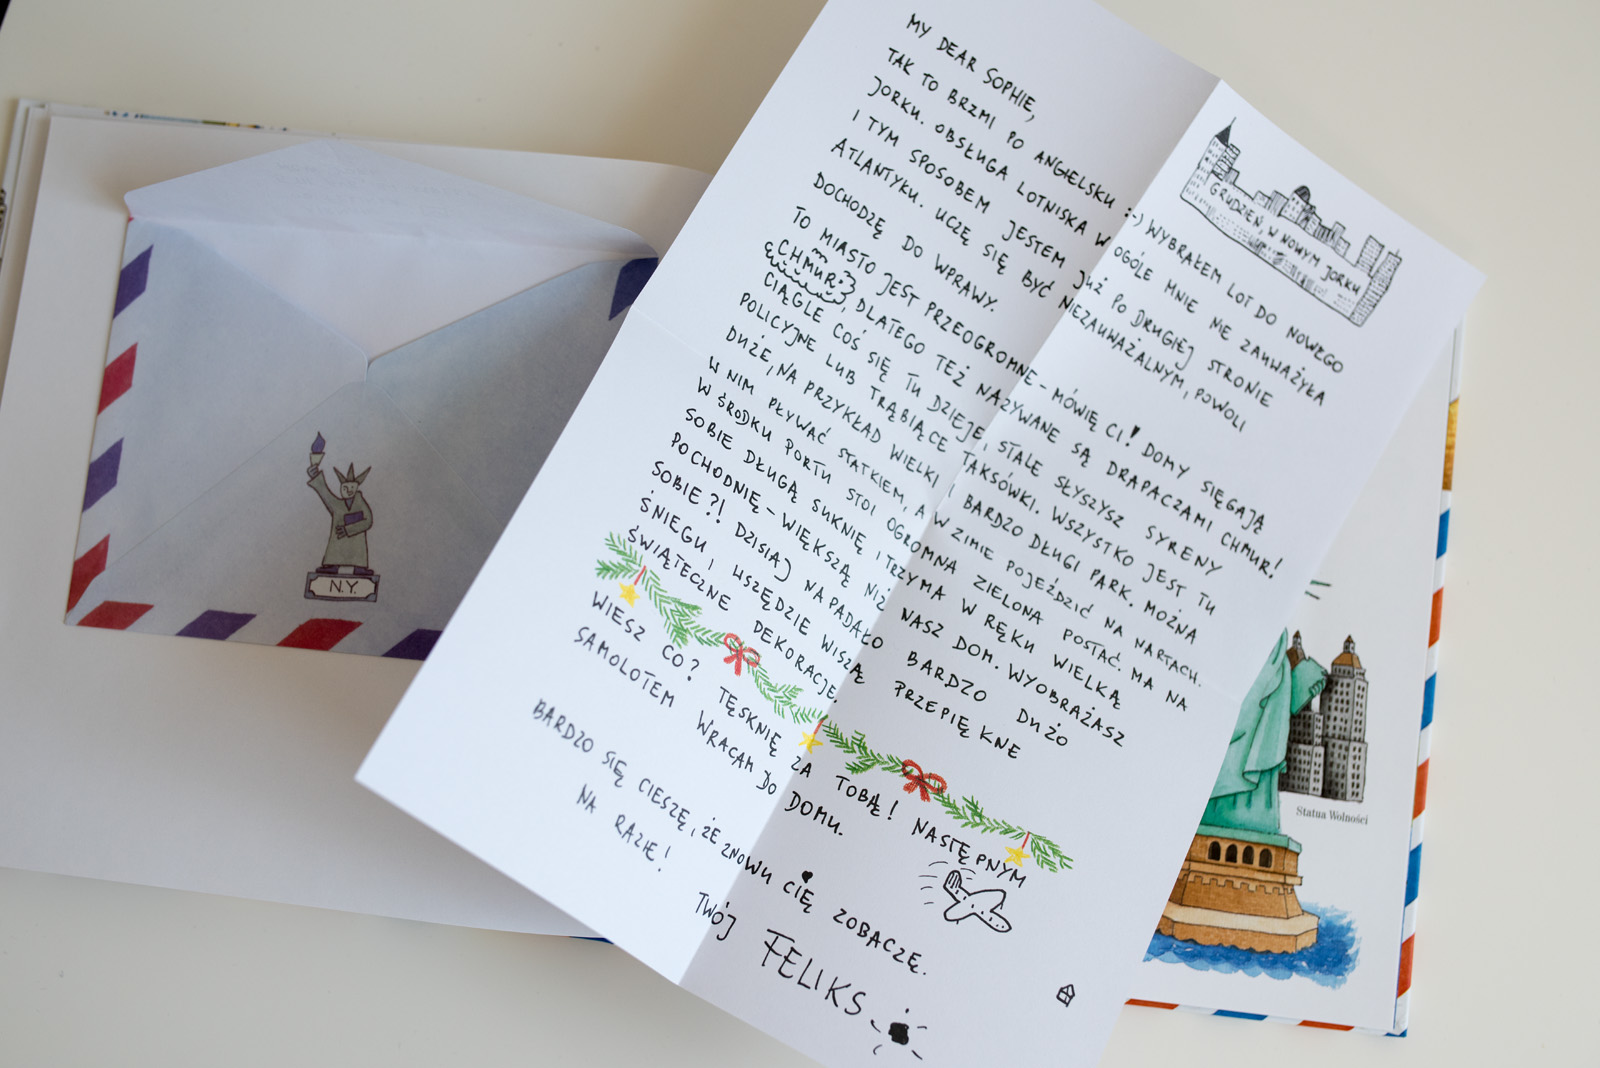 GRUDZIEŃ, W NOWYM JORKU
MY DEAR SOPHIE,
TAK TO BRZMI PO ANGIELSKU :-) WYBRAŁEM LOT DO NOWEGO
JORKU. OBSŁUGA LOTNISKA W OGÓLE MNIE NIE ZAUWAŻYŁA
I TYM SPOSOBEM JESTEM JUŻ PO DRUGIEJ STRONIE
ATLANTYKU. UCZĘ SIĘ BYĆ NIEZAUWAŻALNYM, POWOLI
DOCHODZĘ DO WPRAWY.
TO MIASTO JEST PRZEOGROMNE - MÓWIĘ CI! DOMY SIĘGAJĄ
CHMUR, DLATEGO TEŻ NAZYWANE SĄ DRAPACZAMI CHMUR!
CIĄGLE COŚ SIĘ TU DZIEJE, STALE SŁYSZYSZ SYRENY
POLICYJNE LUB TRĄBIĄCE TAKSÓWKI. WSZYSTKO JEST TU
DUŻE, NA PRZYKŁAD WIELKI I BARDZO DŁUGI PARK. MOŻNA
W NIM PŁYWAĆ STATKIEM, A W ZIMIE POJEŹDZIĆ NA NARTACH.
W ŚRODKU PORTU STOI OGROMNA ZIELONA POSTAĆ. MA NA
SOBIE DŁUGĄ SUKNIĘ I TRZYMA W RĘKU WIELKĄ
POCHODNIĘ - WIĘKSZĄ NIŻ NASZ DOM. WYOBRAŻASZ
SOBIE?! DZISIAJ NAPADAŁO BARDZO DUŻO
ŚNIEGU I WSZĘDZIE WISZĄ PRZEPIĘKNE
ŚWIĄTECZNE DEKORACJE.
WIESZ CO? TĘSKNIĘ ZA TOBĄ! NASTĘPNYM
SAMOLOTEM WRACAM DO DOMU.
BARDZO SIĘ CIESZĘ, ŻE ZNOWU CIĘ ZOBACZĘ.
NA RAZIE!
TWÓJ
FELIKS
N.Y.
Statua Wolności